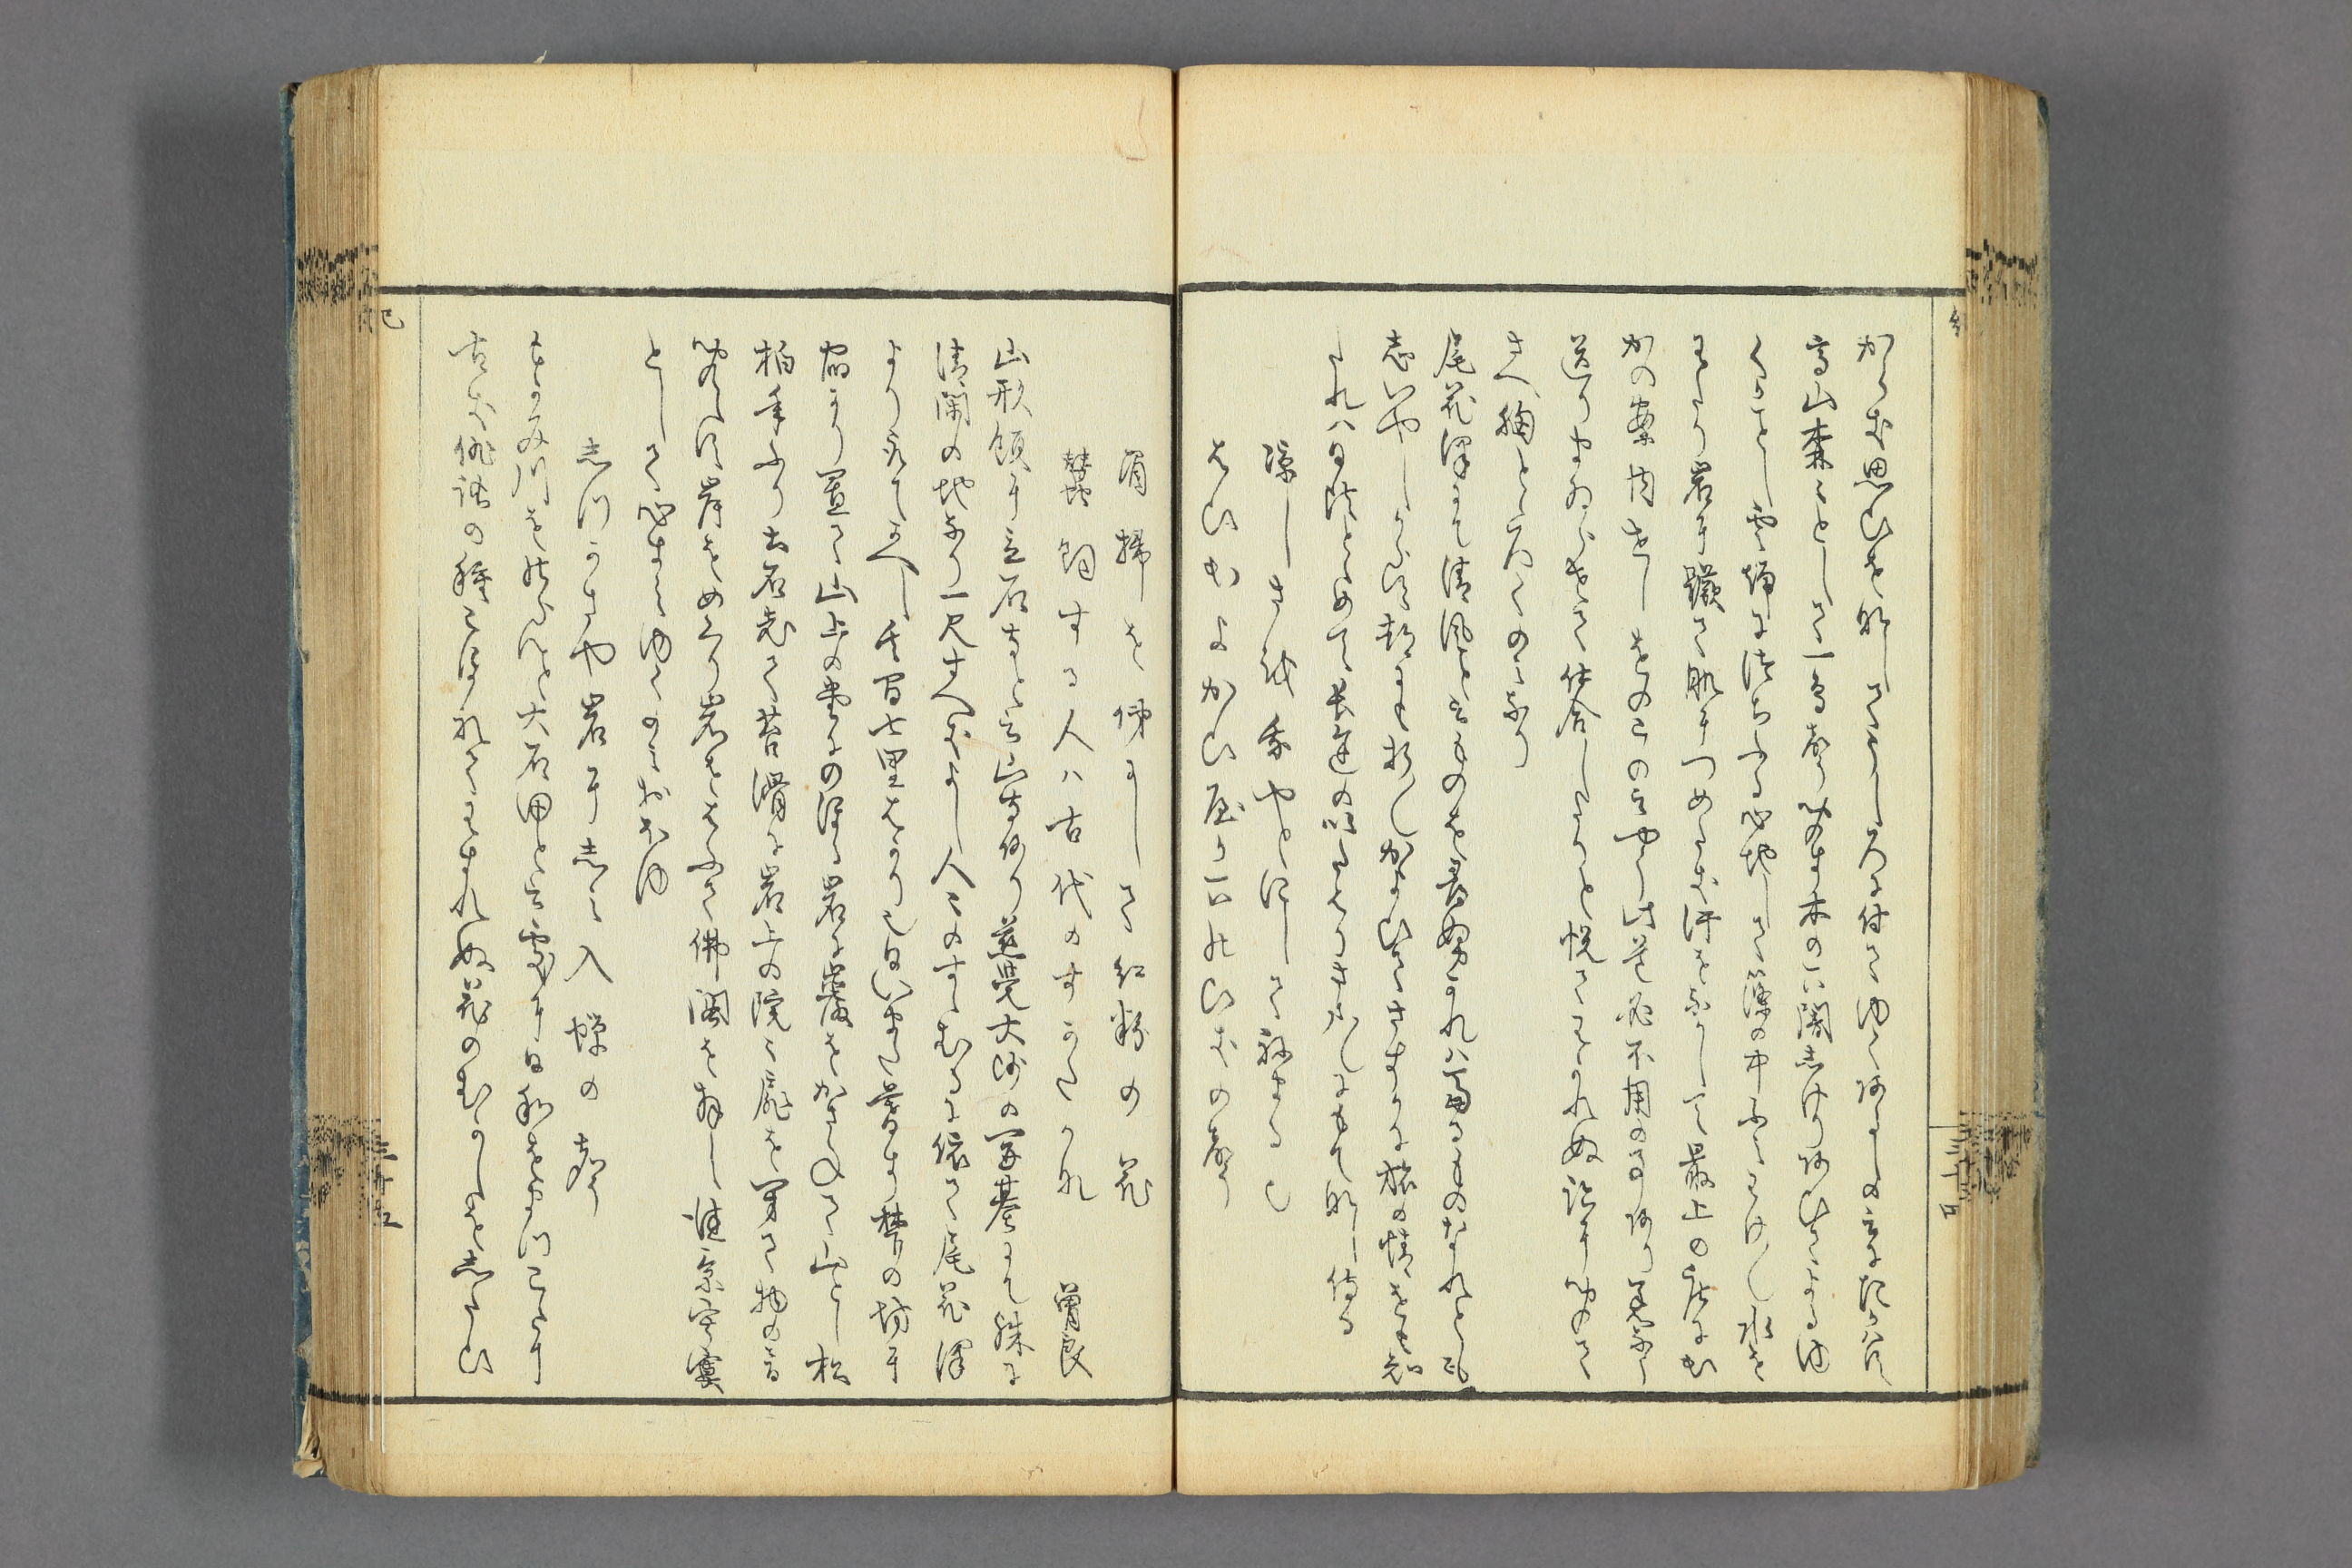 からき思ひを那してうしろに付てゆくあるしの言にたかはす
高山森々として一鳥聲聞す木の下闇志けりあひてよるゆ
くことし雲端に津ちふる心地して篠の中ふみわけ〳〵水を
わたり岩に蹶て肌につめたき汗をなかして最上の庄に出
かの案内せしをのこの云やう此道必不用の事あり恙なう
送りまゐらせて仕合したりと悦てわかれぬ跡に聞て
さへ胸とゝろくのみなり
尾花澤にて清風と云ものを尋ぬかれハ富るものなれとも
志いやしからす都にも折〳〵かよひてさすかに旅の情をも知
たれハ日比とゝめて長途の労いたはりさま〳〵にもてなし侍る
涼しさを我やとにしてねまる也
はひ出よかひ屋か下のひきの聲
眉掃を俤にして紅粉の花
蠶飼する人ハ古代のすかたかな　曽良
山形領に立石寺と云山寺あり慈覺大師の開基にて殊に
清閑の地なり一見すへきよし人々のすゝむるに依て尾花澤
よりとつてかへし其間七里はかり也日いまた暮す梺の坊に
宿かり置て山上の堂にのほる岩に巖をかさねて山とし松
柏年ふり土石老て苔滑に岩上の院々扉を閉て物の音
聞えす岸をめくり岩をはふて佛閣を拝し佳景寂寞
として心すみゆくのみおほゆ
志つかさや岩に志み入蝉の聲
もかみ川をのらんと大石田と云處に日和をまつこゝに
古き俳諧の種こほれてわすれぬ花のむかしを志たひ